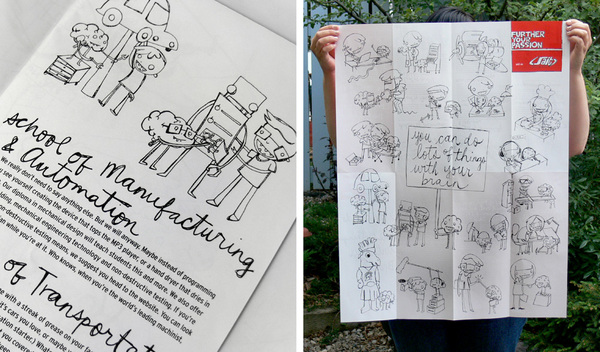 school of Manufacturing
& Automation
We really don't need to say anything else. But we will anyway. Maybe instead of programming
see yourself creating the device that tops the MP3 player. Or a hand dryer that dries in
Our diploma in mechanical design will teach students this and more. We also offer
lding, mechanical engineering technology and non-destructive testing. If you're
on-destructive testing means, we suggest you head to the website. You can look
while you're at it. Who knows, when you're the world's leading machinist,
of Transportat
e with a streak of grease on your fa
it's cars you love, or mayb
ation starter.) What
you covere
FURTHER
YOUR
PASSION
SAIT
you can do
lots of things
with your
brain